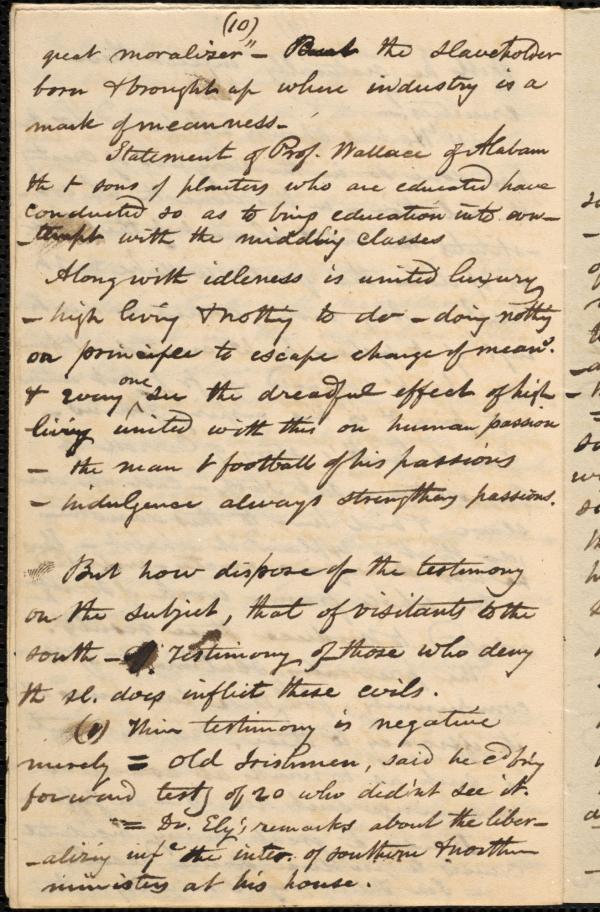 (10)
great moralizer" - But the slaveholder
born & brought up where industry is a
mark of meanness -
Statement of Prof. Wallace of Alabam
tht sons of planters who are educated have
conducted so as to bring education into con-
-tempt with the middling classes
Along with idleness is united luxury
- high living & nothg to do - doing nothg
on principle to escape charge of mean.
& every one see the dreadful effect of high
living united with this on human passion
- the man t football of his passions
- indulgence always strengthens passions.
But how dispose of the testimony
on the subject, that of visitants to the
south - Testimony of those who deny
tht sl. does inflict these evils.
(1) Their testimony is negative
merely = Old Irishmen, said he cd bring
forward testy of 20 who didnt see it.
= Dr. Ely's remarks about the liber-
-alizing infe the inter. of southern & northern
ministers at his house.